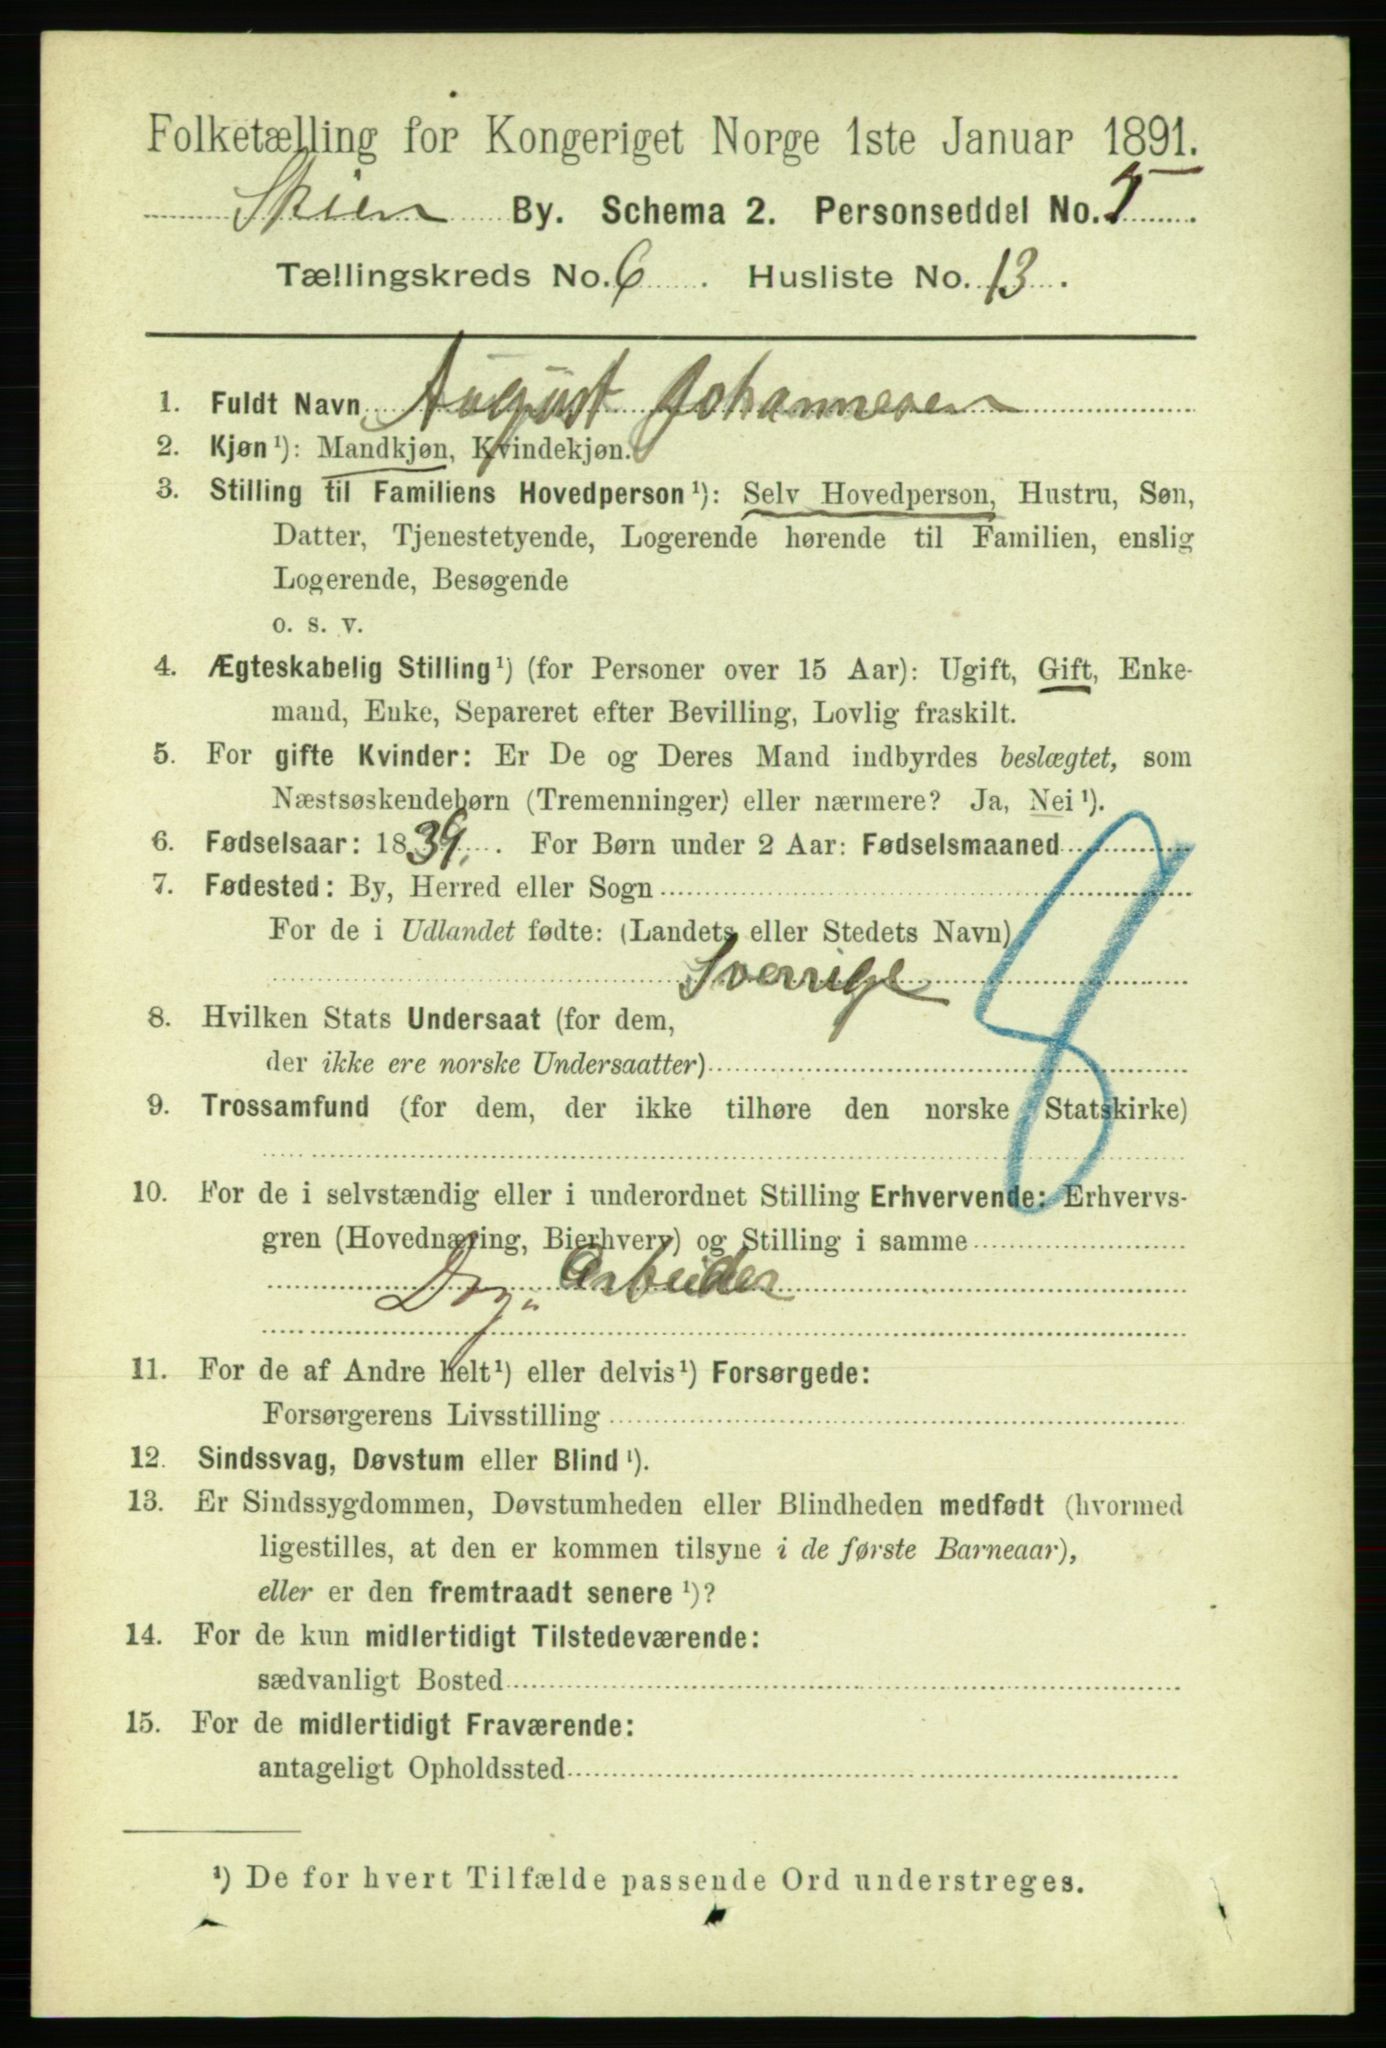 Folketælling for Kongeriget Norge 1ste Januar 1891.
Skien By. Schema 2. Personseddel No. 5
Tællingskreds No. 6. Husliste No. 13.
1. Fuldt Navn August Johannesen
2. Kjøn¹): Mandkjøn, Kvindekjøn.
3. Stilling til Familiens Hovedperson¹): Selv Hovedperson, Hustru, Søn,
Datter, Tjenestetyende, Logerende hørende til Familien, enslig
Logerende, Besøgende
o. s. v.
4. Ægteskabelig Stilling¹) (for Personer over 15 Aar): Ugift, Gift, Enke-
mand, Enke, Separeret efter Bevilling, Lovlig fraskilt.
5. For gifte Kvinder: Er De og Deres Mand indbyrdes beslægtet, som
Næstsøskendebørn (Tremenninger) eller nærmere? Ja, Nei¹).
6. Fødselsaar: 1839. For Børn under 2 Aar: Fødselsmaaned
7. Fødested: By, Herred eller Sogn
For de i Udlandet fødte: (Landets eller Stedets Navn)
Sverrige
8. Hvilken Stats Undersaat (for dem,
der ikke ere norske Undersaatter)
9. Trossamfund (for dem, der ikke tilhøre den norske Statskirke)
10. For de i selvstændig eller i underordnet Stilling Erhvervende: Erhvervs-
gren (Hovednæring, Bierhverv) og Stilling i samme
Arbeider
11. For de af Andre helt¹) eller delvis¹) Forsørgede:
Forsørgerens Livsstilling
12. Sindssvag, Døvstum eller Blind¹).
13. Er Sindssygdommen, Døvstumheden eller Blindheden medfødt (hvormed
ligestilles, at den er kommen tilsyne i de første Barneaar),
eller er den fremtraadt senere¹)?
14. For de kun midlertidigt Tilstedeværende:
sædvanligt Bosted
15. For de midlertidigt Fraværende:
antageligt Opholdssted
¹) De for hvert Tilfælde passende Ord understreges.